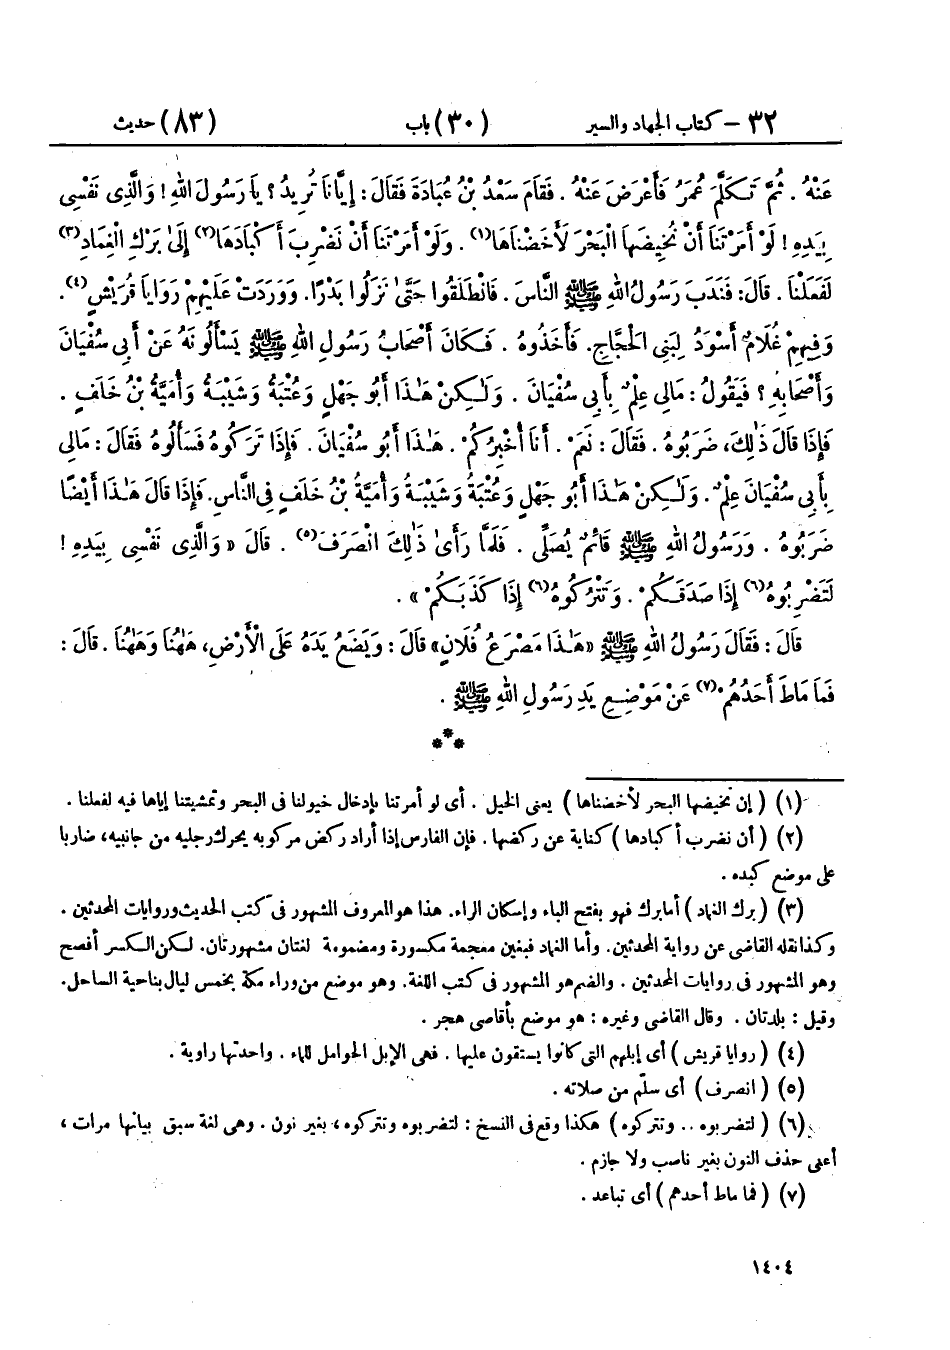 ٣٢ – كتاب الجهاد والسير (٣٠) باب (٨٣) حديث
عَنْهُ . ثُمَّ تَكَلَّمَ عُمَرُ فَأَعْرَضَ عَنْهُ . فَقَامَ سَعْدُ بْنُ عُبَادَةَ فَقَالَ : إِيَّانَا تُرِيدُ ؟ يَا رَسُولَ اللهِ ! وَالَّذِى نَفْسِى
بِيَدِهِ ! لَوْ أَمَرْتَنَا أَنْ نُخِيضَهَا الْبَحْرَ لَأَخَضْنَاهَا(١) . وَلَوْ أَمَرْتَنَا أَنْ نَضْرِبَ أَكْبَادَهَا(٢) إِلَىٰ بَرْكِ الْغِمَادِ(٣)
لَفَعَلْنَا . قَالَ: فَنَدَبَ رَسُولُ اللهِ ﷺ النَّاسَ . فَانْطَلَقُوا حَتَّىٰ نَزَلُوا بَدْرًا. وَوَرَدَتْ عَلَيْهِمْ رَوَايَا قُرَيْشٍ(٤).
وَفِيهِمْ غُلَامٌ أَسْوَدُ لِبَنِى الْحَجَّاجِ. فَأَخَذُوهُ . فَكَانَ أَصْحَابُ رَسُولِ اللهِ ﷺ يَسْأَلُونَهُ عَنْ أَبِى سُفْيَانَ
وَأَصْحَابِهِ ؟ فَيَقُولُ : مَالِى عِلْمٌ بِأَبِى سُفْيَانَ . وَلَٰكِنْ هَٰذَا أَبُو جَهْلٍ وَعُتْبَةُ وَشَيْبَةُ وَأُمَيَّةُ بْنُ خَلَفٍ .
فَإِذَا قَالَ ذَٰلِكَ، ضَرَبُوهُ . فَقَالَ : نَعَمْ . أَنَا أُخْبِرُكُمْ . هَٰذَا أَبُو سُفْيَانَ . فَإِذَا تَرَكُوهُ فَسَأَلُوهُ فَقَالَ : مَالِى
بِأَبِى سُفْيَانَ عِلْمٌ . وَلَٰكِنْ هَٰذَا أَبُو جَهْلٍ وَعُتْبَةُ وَشَيْبَةُ وَأُمَيَّةُ بْنُ خَلَفٍ فِى النَّاسِ. فَإِذَا قَالَ هَٰذَا أَيْضًا
ضَرَبُوهُ . وَرَسُولُ اللهِ ﷺ قَائِمٌ يُصَلِّى . فَلَمَّا رَأَىٰ ذَٰلِكَ انْصَرَفَ(٥) . قَالَ « وَالَّذِى نَفْسِى بِيَدِهِ !
لَتَضْرِبُوهُ(٦) إِذَا صَدَقَكُمْ . وَتَتْرُكُوهُ(٦) إِذَا كَذَبَكُمْ » .
قَالَ : فَقَالَ رَسُولُ اللهِ ﷺ «هَٰذَا مَصْرَعُ فُلَانٍ» قَالَ : وَيَضَعُ يَدَهُ عَلَى الْأَرْضِ، هَٰهُنَا وَهَٰهُنَا . قَالَ :
فَمَا مَاطَ أَحَدُهُمْ(٧) عَنْ مَوْضِعِ يَدِ رَسُولِ اللهِ ﷺ .
***
(١) ( إن نخيضها البحر لأخضناها ) يعنى الخيل . أى لو أمرتنا بإدخال خيولنا فى البحر وتمشيتنا إياها فيه لفعلنا .
(٢) ( أن نضرب أكبادها ) كناية عن ركضها . فإن الفارس إذا أراد ركض مركوبه يحرك رجليه من جانبيه، ضاربا
على موضع كبده .
(٣) ( برك الغماد ) أما برك فهو بفتح الباء وإسكان الراء. هذا هو المعروف المشهور فى كتب الحديث وروايات المحدثين .
وكذا نقله القاضى عن رواية المحدثين. وأما الغماد فبغين معجمة مكسورة ومضمومة لغتان مشهورتان. لكن الكسر أفصح
وهو المشهور فى روايات المحدثين . والضم هو المشهور فى كتب اللغة. وهو موضع من وراء مكة بخمس ليال بناحية الساحل.
وقيل : بلدتان . وقال القاضى وغيره : هو موضع بأقاصى هجر .
(٤) ( روايا قريش ) أى إبلهم التى كانوا يستقون عليها . فهى الإبل الحوامل للماء . واحدتها راوية .
(٥) ( انصرف ) أى سلّم من صلاته .
(٦) ( لتضربوه .. وتتركوه ) هكذا وقع فى النسخ : لتضربوه وتتركوه ، بغير نون . وهى لغة سبق بيانها مرات ،
أعنى حذف النون بغير ناصب ولا جازم .
(٧) ( فما ماط أحدهم ) أى تباعد .
١٤٠٤